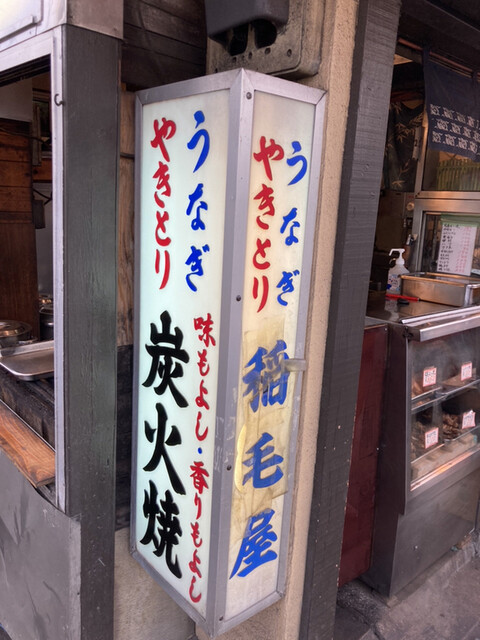 うなぎ
やきとり
味もよし・香りもよし
炭火焼
うなぎ
やきとり
稲毛屋